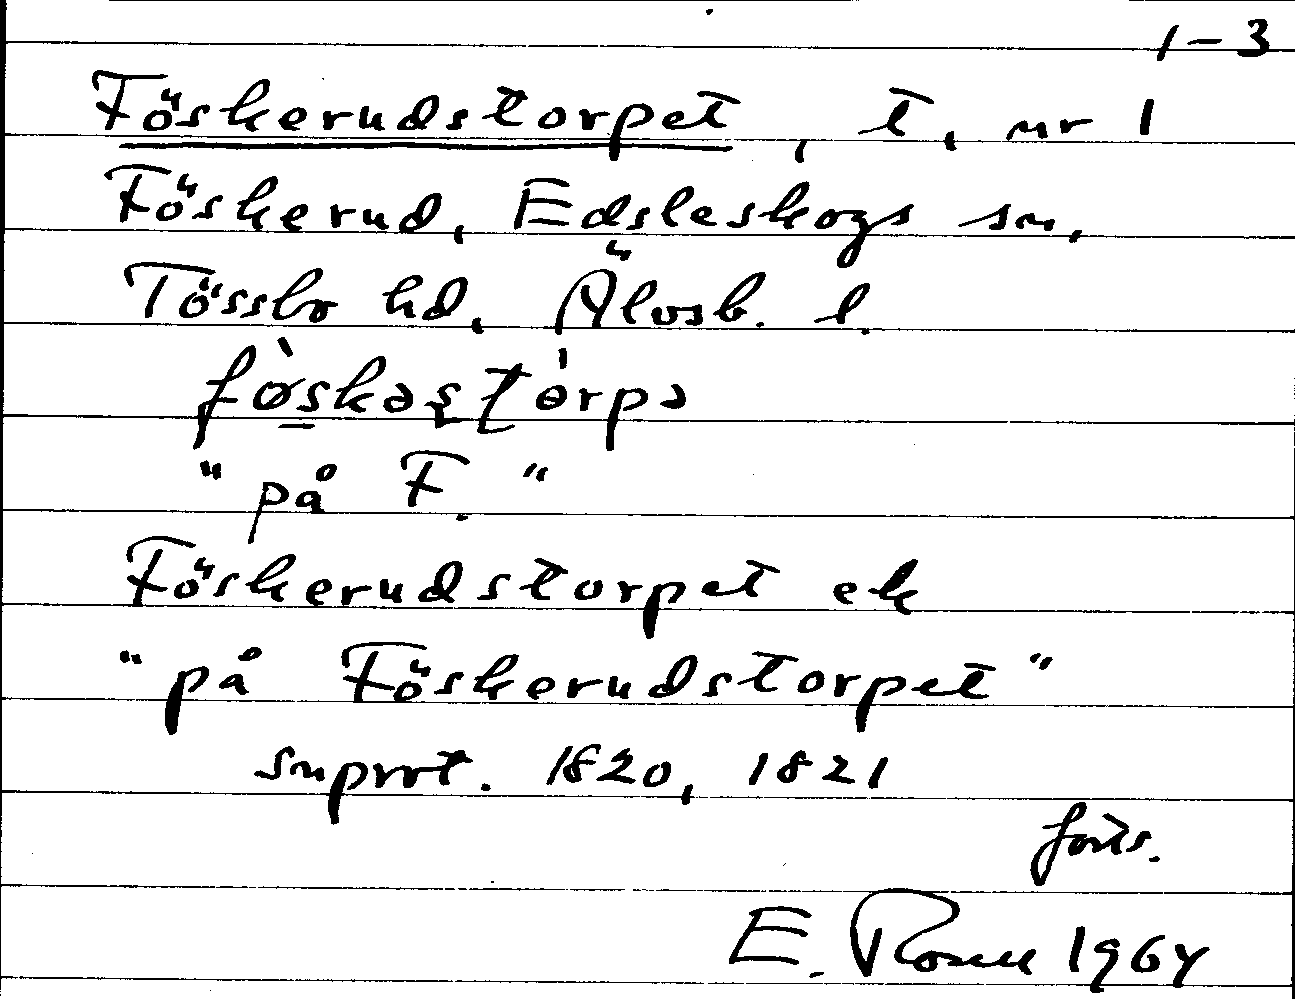 1-3
Föskerudstorpet, t, nr 1
Föskerud, Edsleskogs sn,
Tössbo hd, Älvsb. l.
fø̀skəstórpə
"på F."
Föskerudstorpet ek
"på Föskerudstorpet"
snprot. 1820, 1821
forts.
E. 1964